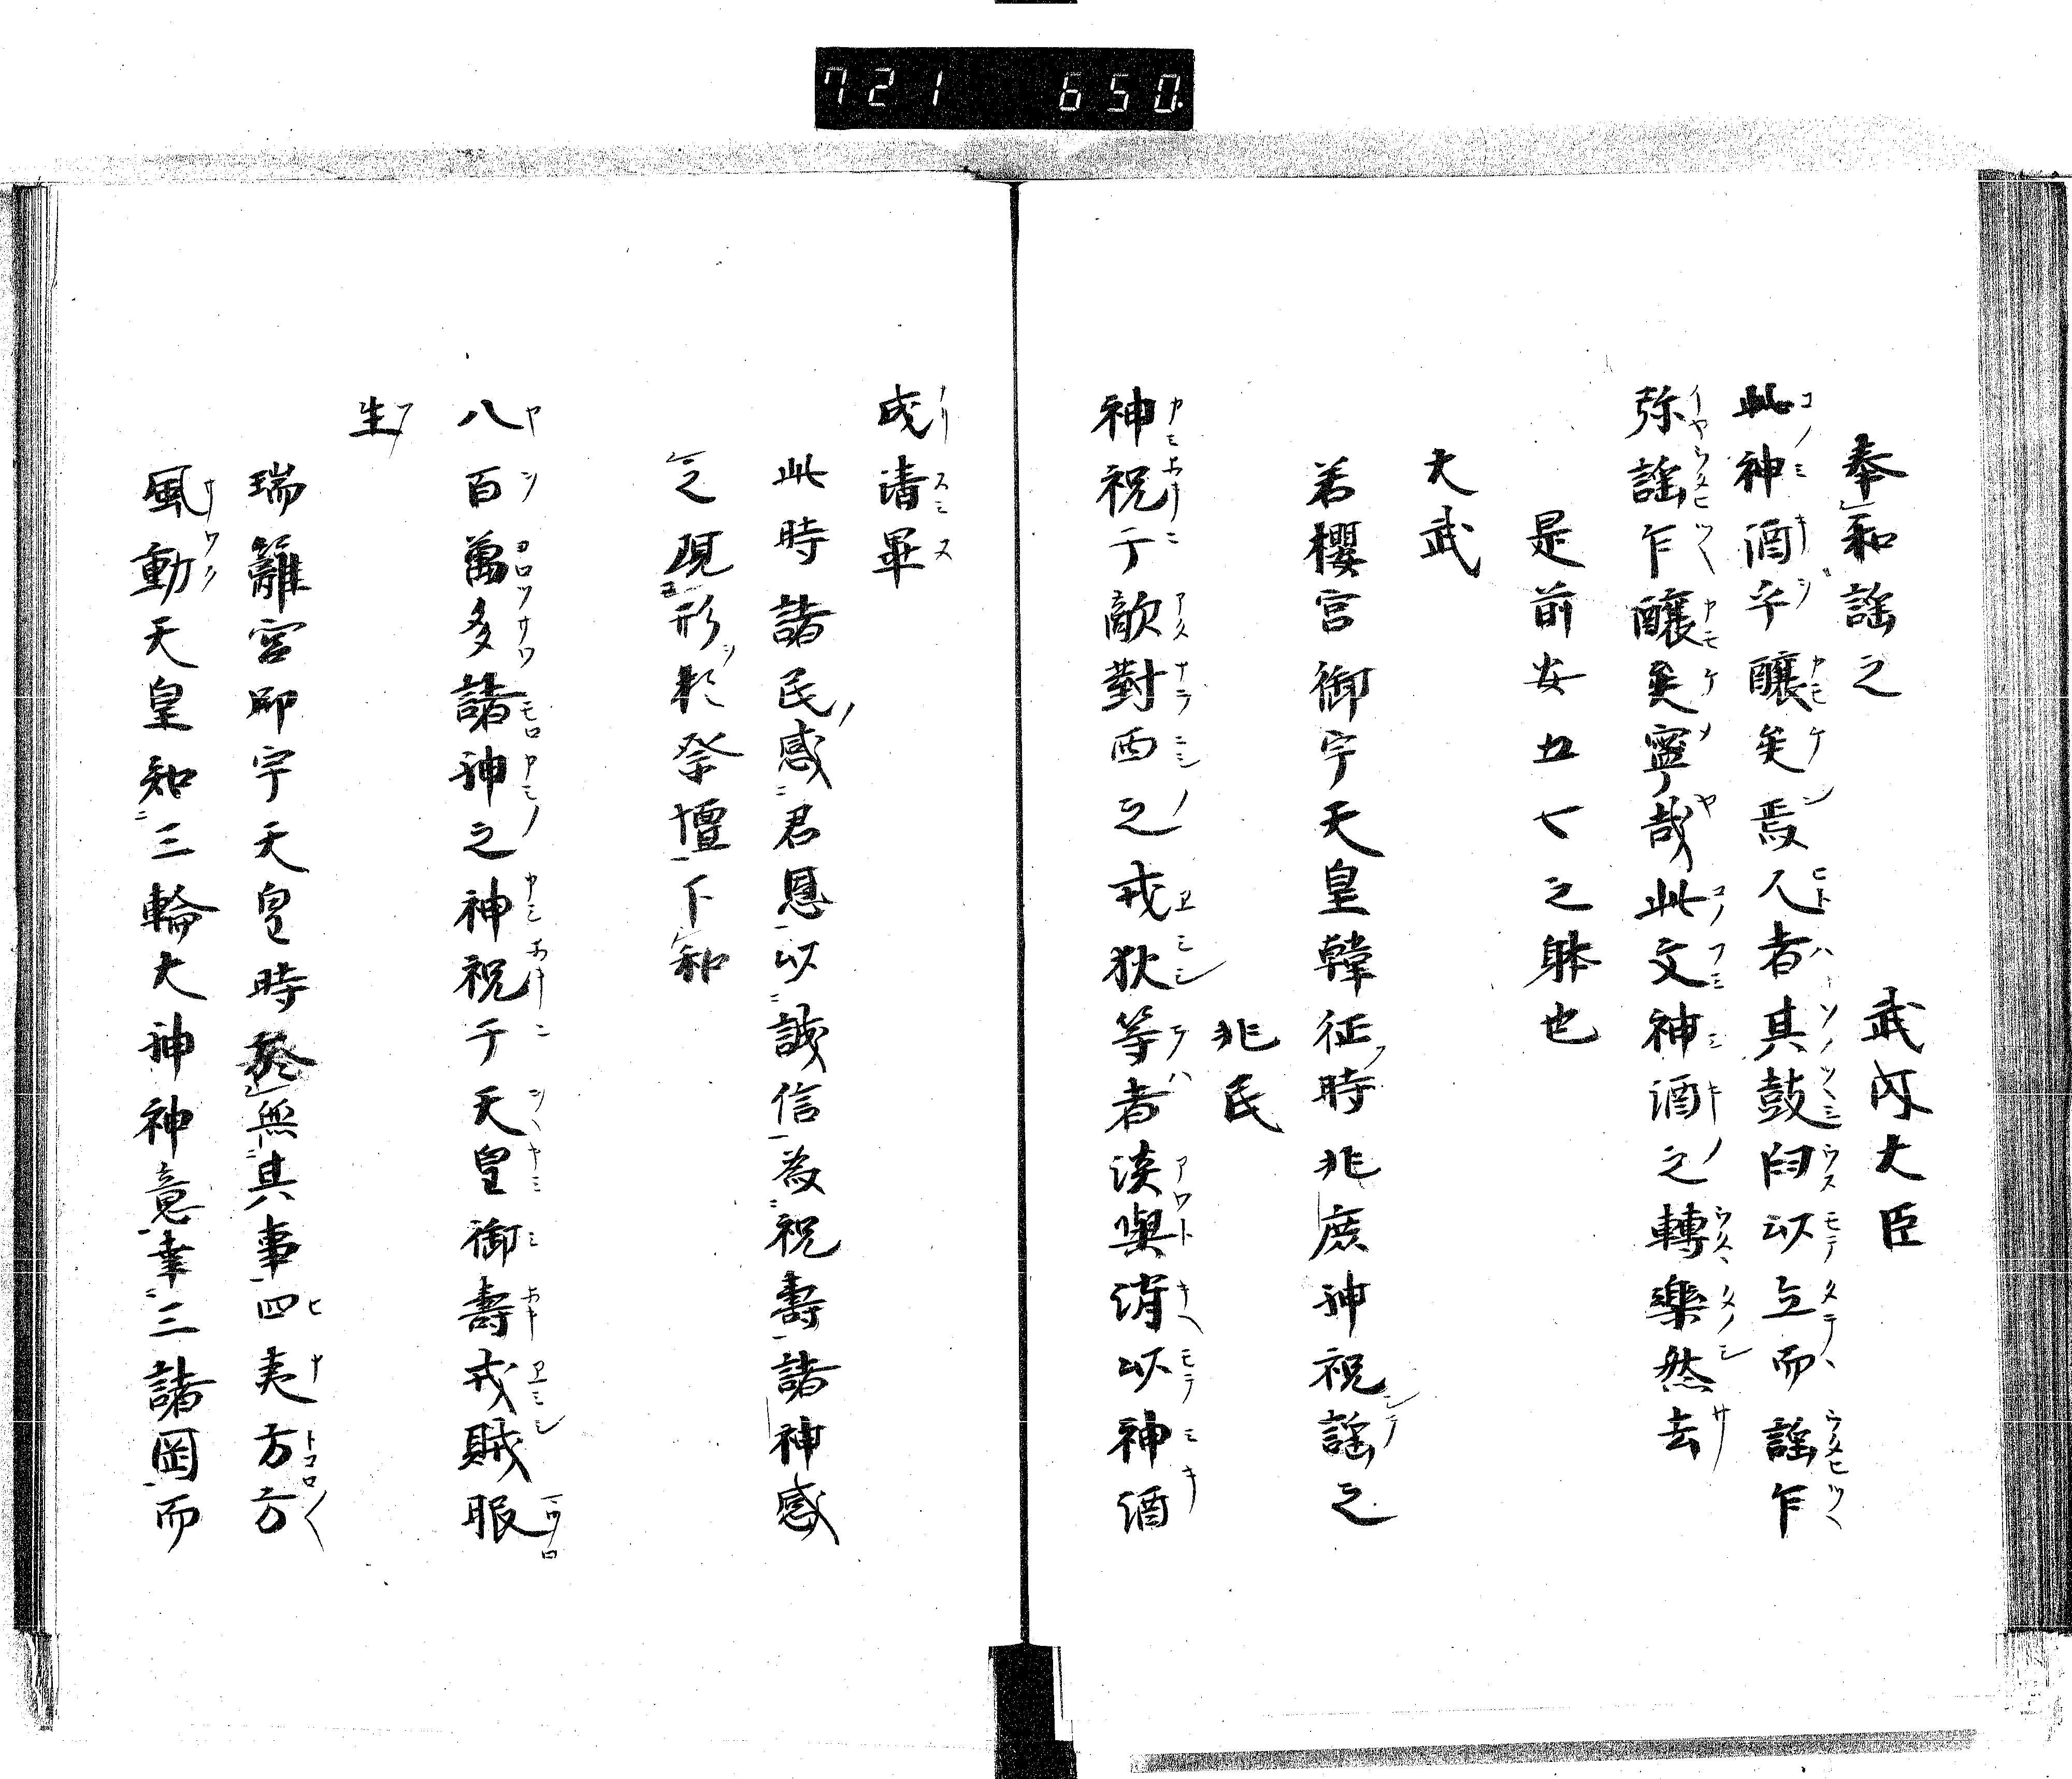 721 650
奉和謡之 武内大臣
此神酒乎醸矣焉人者其鼓臼以立而謡乍
弥謡乍醸矣寧哉此文神酒之轉樂然去
是前安五七之躰也
大武
若櫻宮御宇天皇韓征時兆庶神祝謡之
兆民
神祝于敵對西之戎狄等者淡與消以神酒
成清畢
此時諸民感君恩以誠信為祝壽諸神感
之現形於祭壇下和
八百萬多諸神之神祝于天皇御壽戎賊服
生
瑞籬宮御宇天皇時發無其事四夷方方
風動天皇知三輪大神神意幸三諸岡而